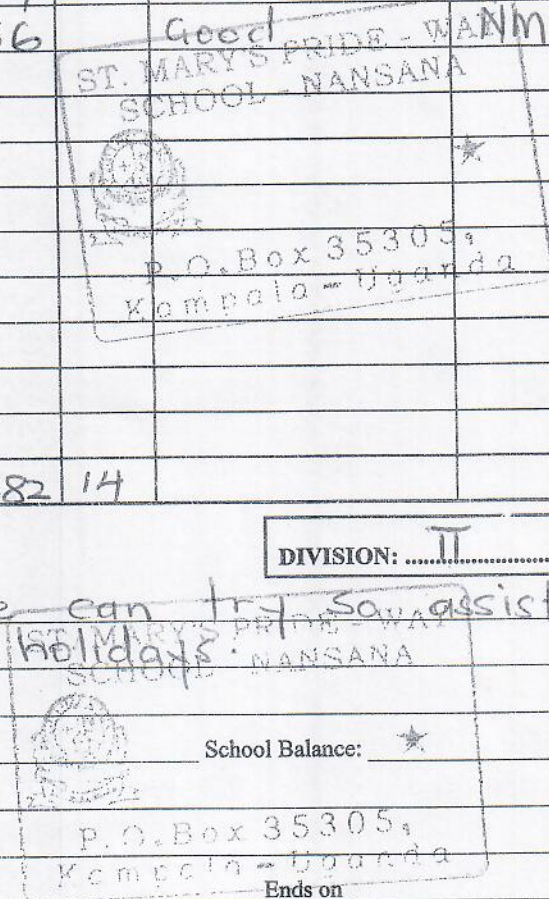 56 Good NM
ST. MARY'S PRIDE - WAY
SCHOOL - NANSANA
P.O. Box 35305,
Kampala - Uganda
82 14
DIVISION: II
can try so assist
holidays.
ST. MARY'S PRIDE - WAY
SCHOOL - NANSANA
School Balance:
P.O. Box 35305,
Kampala - Uganda
Ends on